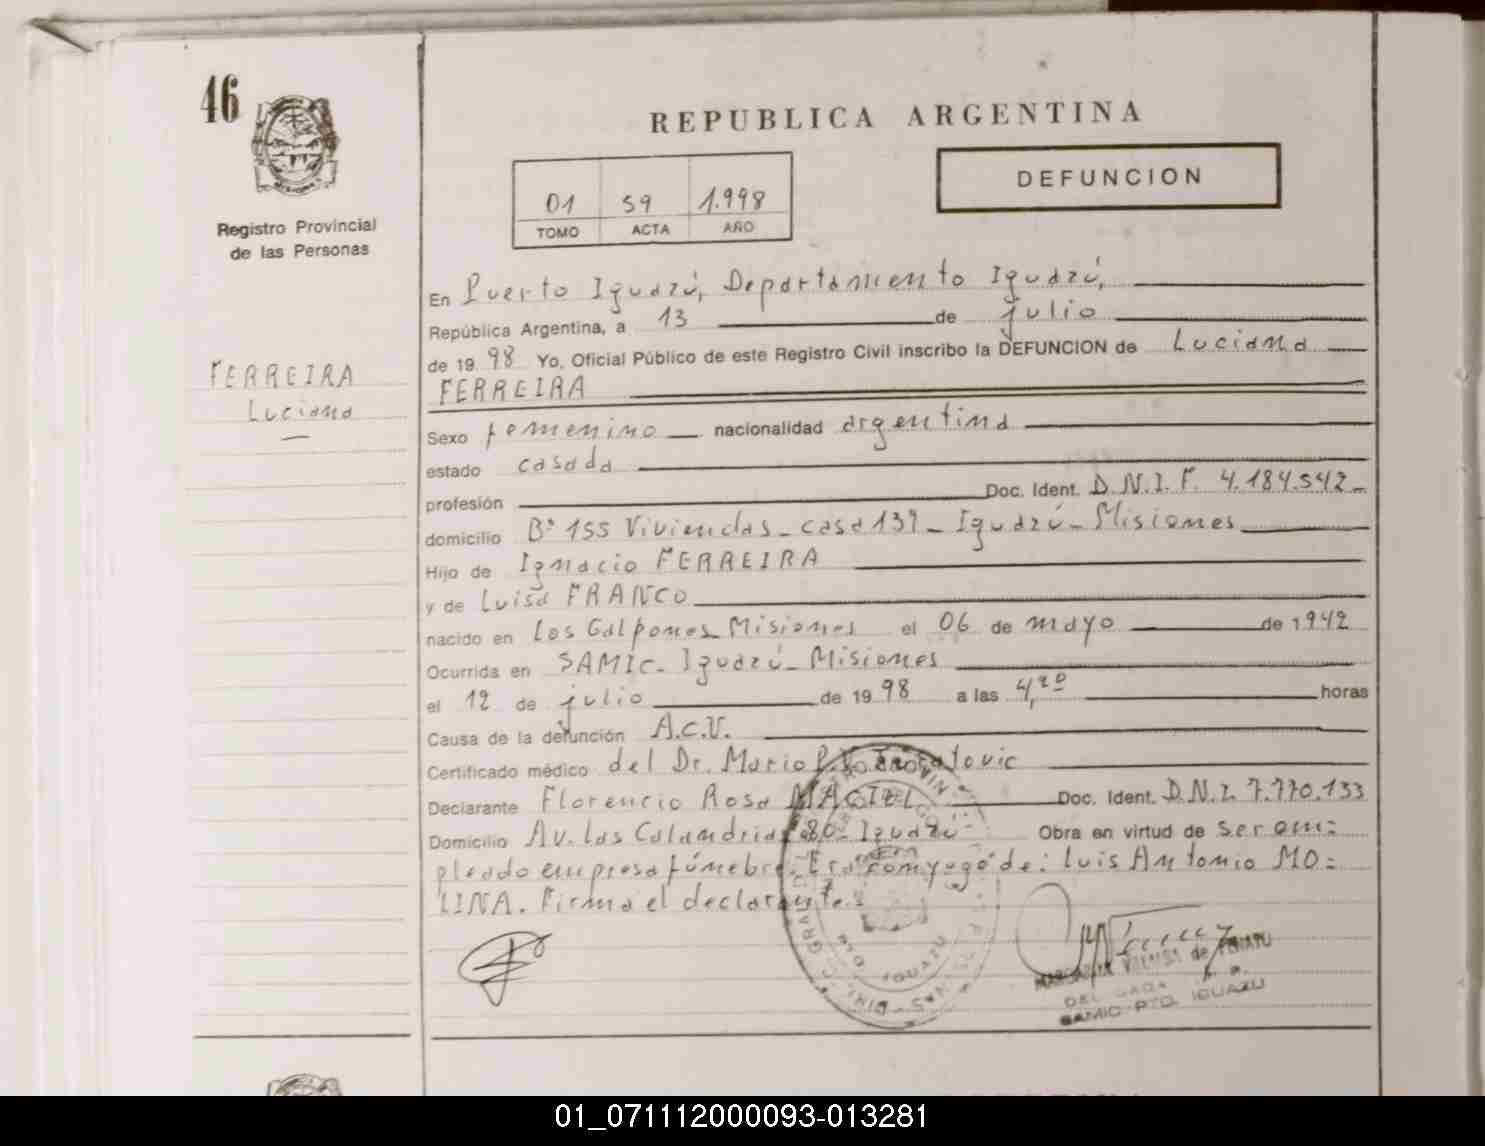 46
REPUBLICA ARGENTINA
DEFUNCION
01 59 1.998
TOMO ACTA AÑO
Registro Provincial
de las Personas
FERREIRA
Luciana
En Puerto Iguazú, Departamento Iguazú,
República Argentina, a 13 de julio
de 1998 Yo, Oficial Público de este Registro Civil inscribo la DEFUNCION de Luciana
FERREIRA
Sexo femenino nacionalidad argentina
estado casada
profesión Doc. Ident. D.N.I.F. 4.184.542
domicilio B° 155 Viviendas - casa 139 - Iguazú - Misiones
Hijo de Ignacio FERREIRA
y de Luisa FRANCO
nacido en Los Galpones Misiones el 06 de mayo de 1942
Ocurrida en SAMIC - Iguazú - Misiones
el 12 de julio de 1998 a las 4,20 horas
Causa de la defunción A.C.V.
Certificado médico del Dr. Mario
Declarante Florencio Rosa MACIEL Doc. Ident. D.N.I. 7.770.133
Domicilio Av. Las Calandrias 80 - Iguazú Obra en virtud de ser em=
pleado empresa fúnebre. Era conyuge de: Luis Antonio MO=
LINA. Firma el declarante.
SAMIC PTO. IGUAZU
01_071112000093-013281